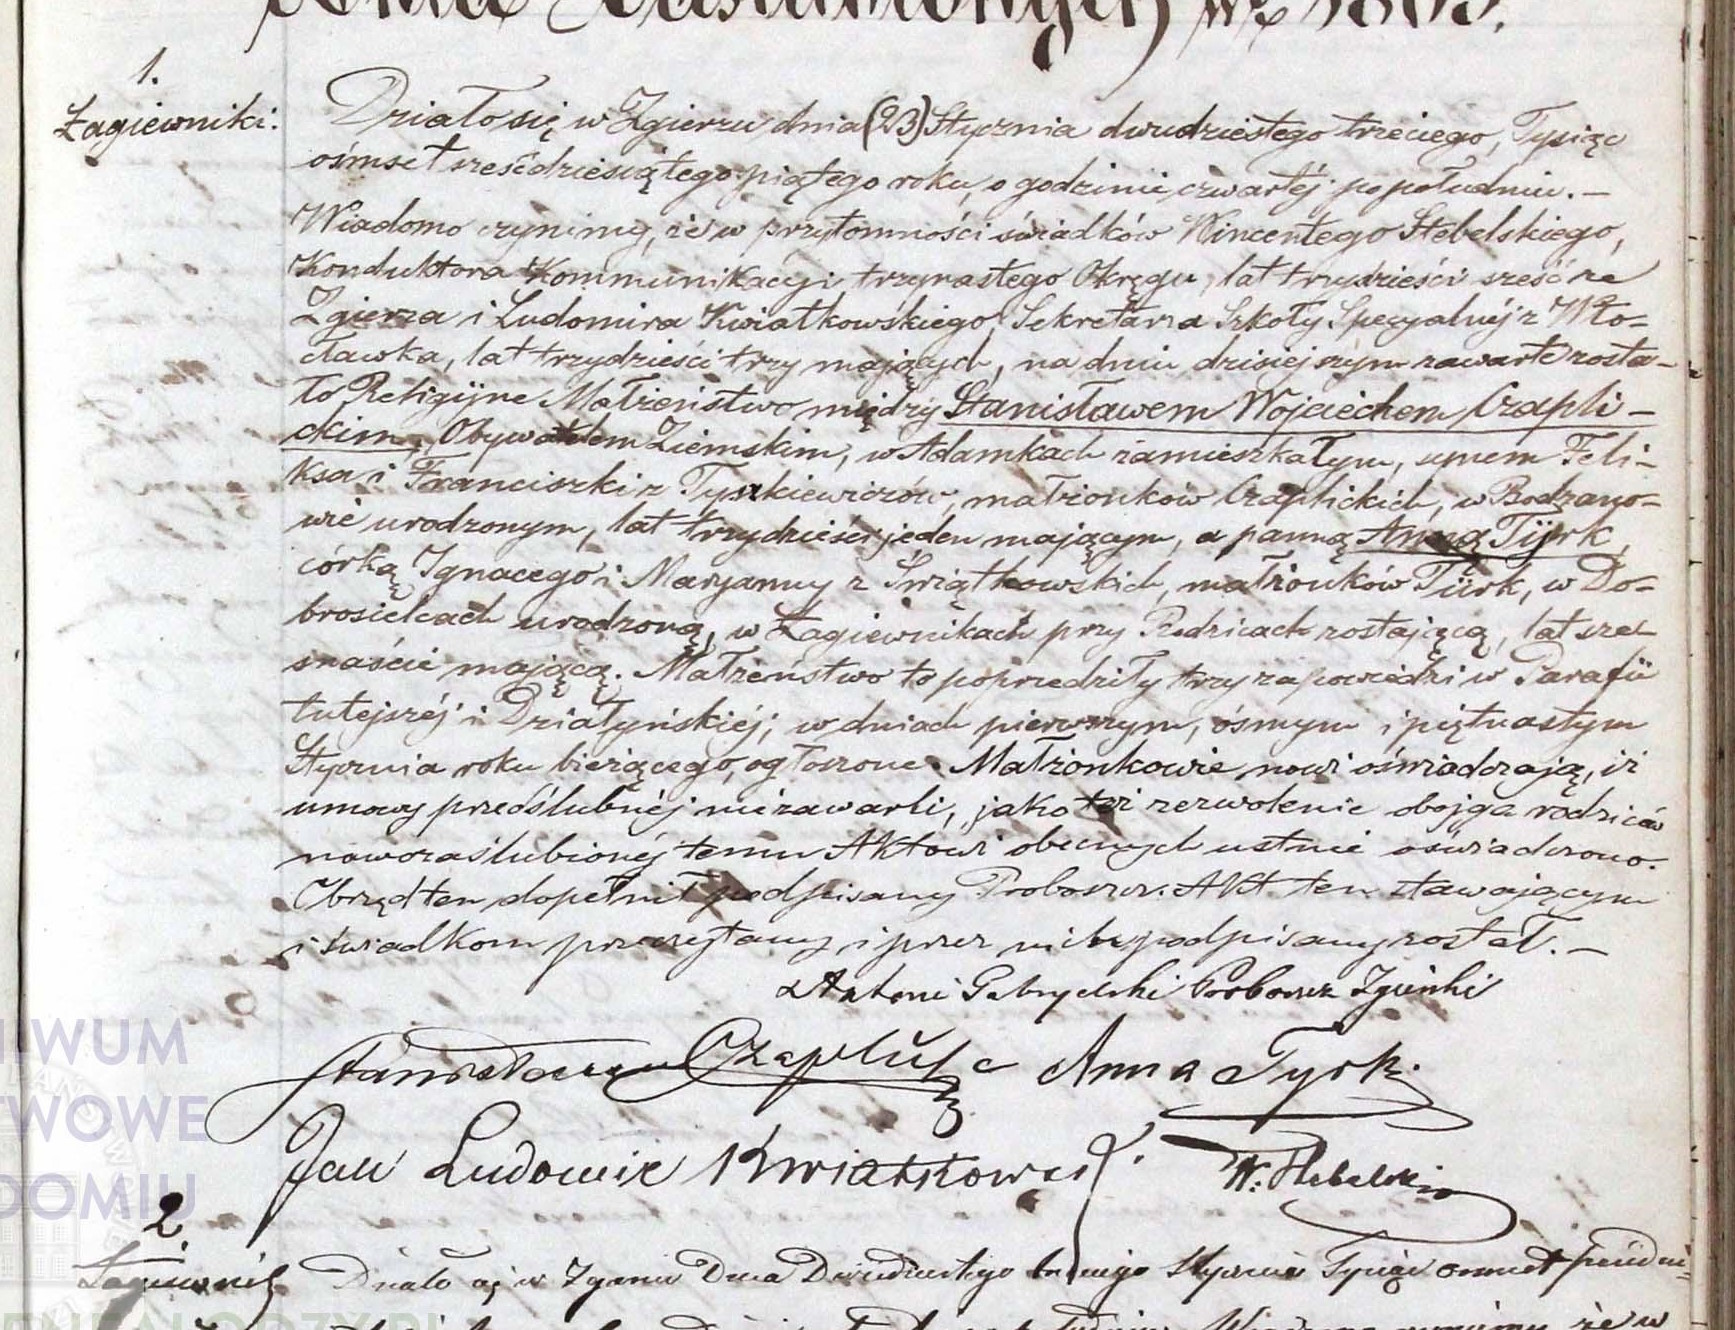 1.
Łagiewniki.
Działo się w Zgierzu dnia (23) Stycznia dwudziestego trzeciego, Tysiąc
ośmset sześćdziesiątego piątego roku, o godzinie czwartéj po południu. —
Wiadomo czynimy, że w przytomności świadków Wincentego Stebelskiego,
Konduktora Kommunikacyi trzynastego Okręgu, lat trzydzieści sześć ze
Zgierza i Ludomira Kwiatkowskiego, Sekretarza Szkoły Specyalnéj z Wło-
cławka, lat trzydzieści trzy mających, na dniu dzisiejszym zawarte zosta-
ło Religijne Małżeństwo między Stanisławem Wojciechem Czapli-
ckim, Obywatelem Ziemskim, w Adamkach zamieszkałym, synem Feli-
ksa i Franciszki z Tyszkiewiczów, małżonków Czaplickich, w Bodzano-
wie urodzonym, lat trzydzieści jeden mającym, a panną Anną Tÿrk,
córką Ignacego i Maryanny z Świątkowskich, małżonków Türk, w Do-
brosielcach urodzoną, w Łagiewnikach przy Rodzicach zostającą, lat sze-
snaście mającą. Małżeństwo to poprzedziły trzy zapowiedzi w Parafii
tutejszéj i Działyńskiéj, w dniach pierwszym, ósmym i piętnastym
Stycznia roku bieżącego, ogłoszone. Małżonkowie nowi oświadczają, iż
umowy przedślubnéj nie zawarli, jako też zezwolenie obojga rodziców
nowozaślubionéj temu Aktowi obecnych ustnie oświadczono.
Obrzęd ten dopełnił podpisany Proboszcz. Akt ten stawającym
i świadkom przeczytany i przez nich podpisany został. —
X Antoni Gabryelski Proboszcz Zgierski
Stanisław Czaplicki Anna Tyrk.
Jan Ludomir Kwiatkowski. W. Stebelski
2.
Łagiewniki
Działo się w Zgierzu Dnia Dwudziestego trzeciego Stycznia Tysiąc osmset
IWUM
TWOWE
DOMIU